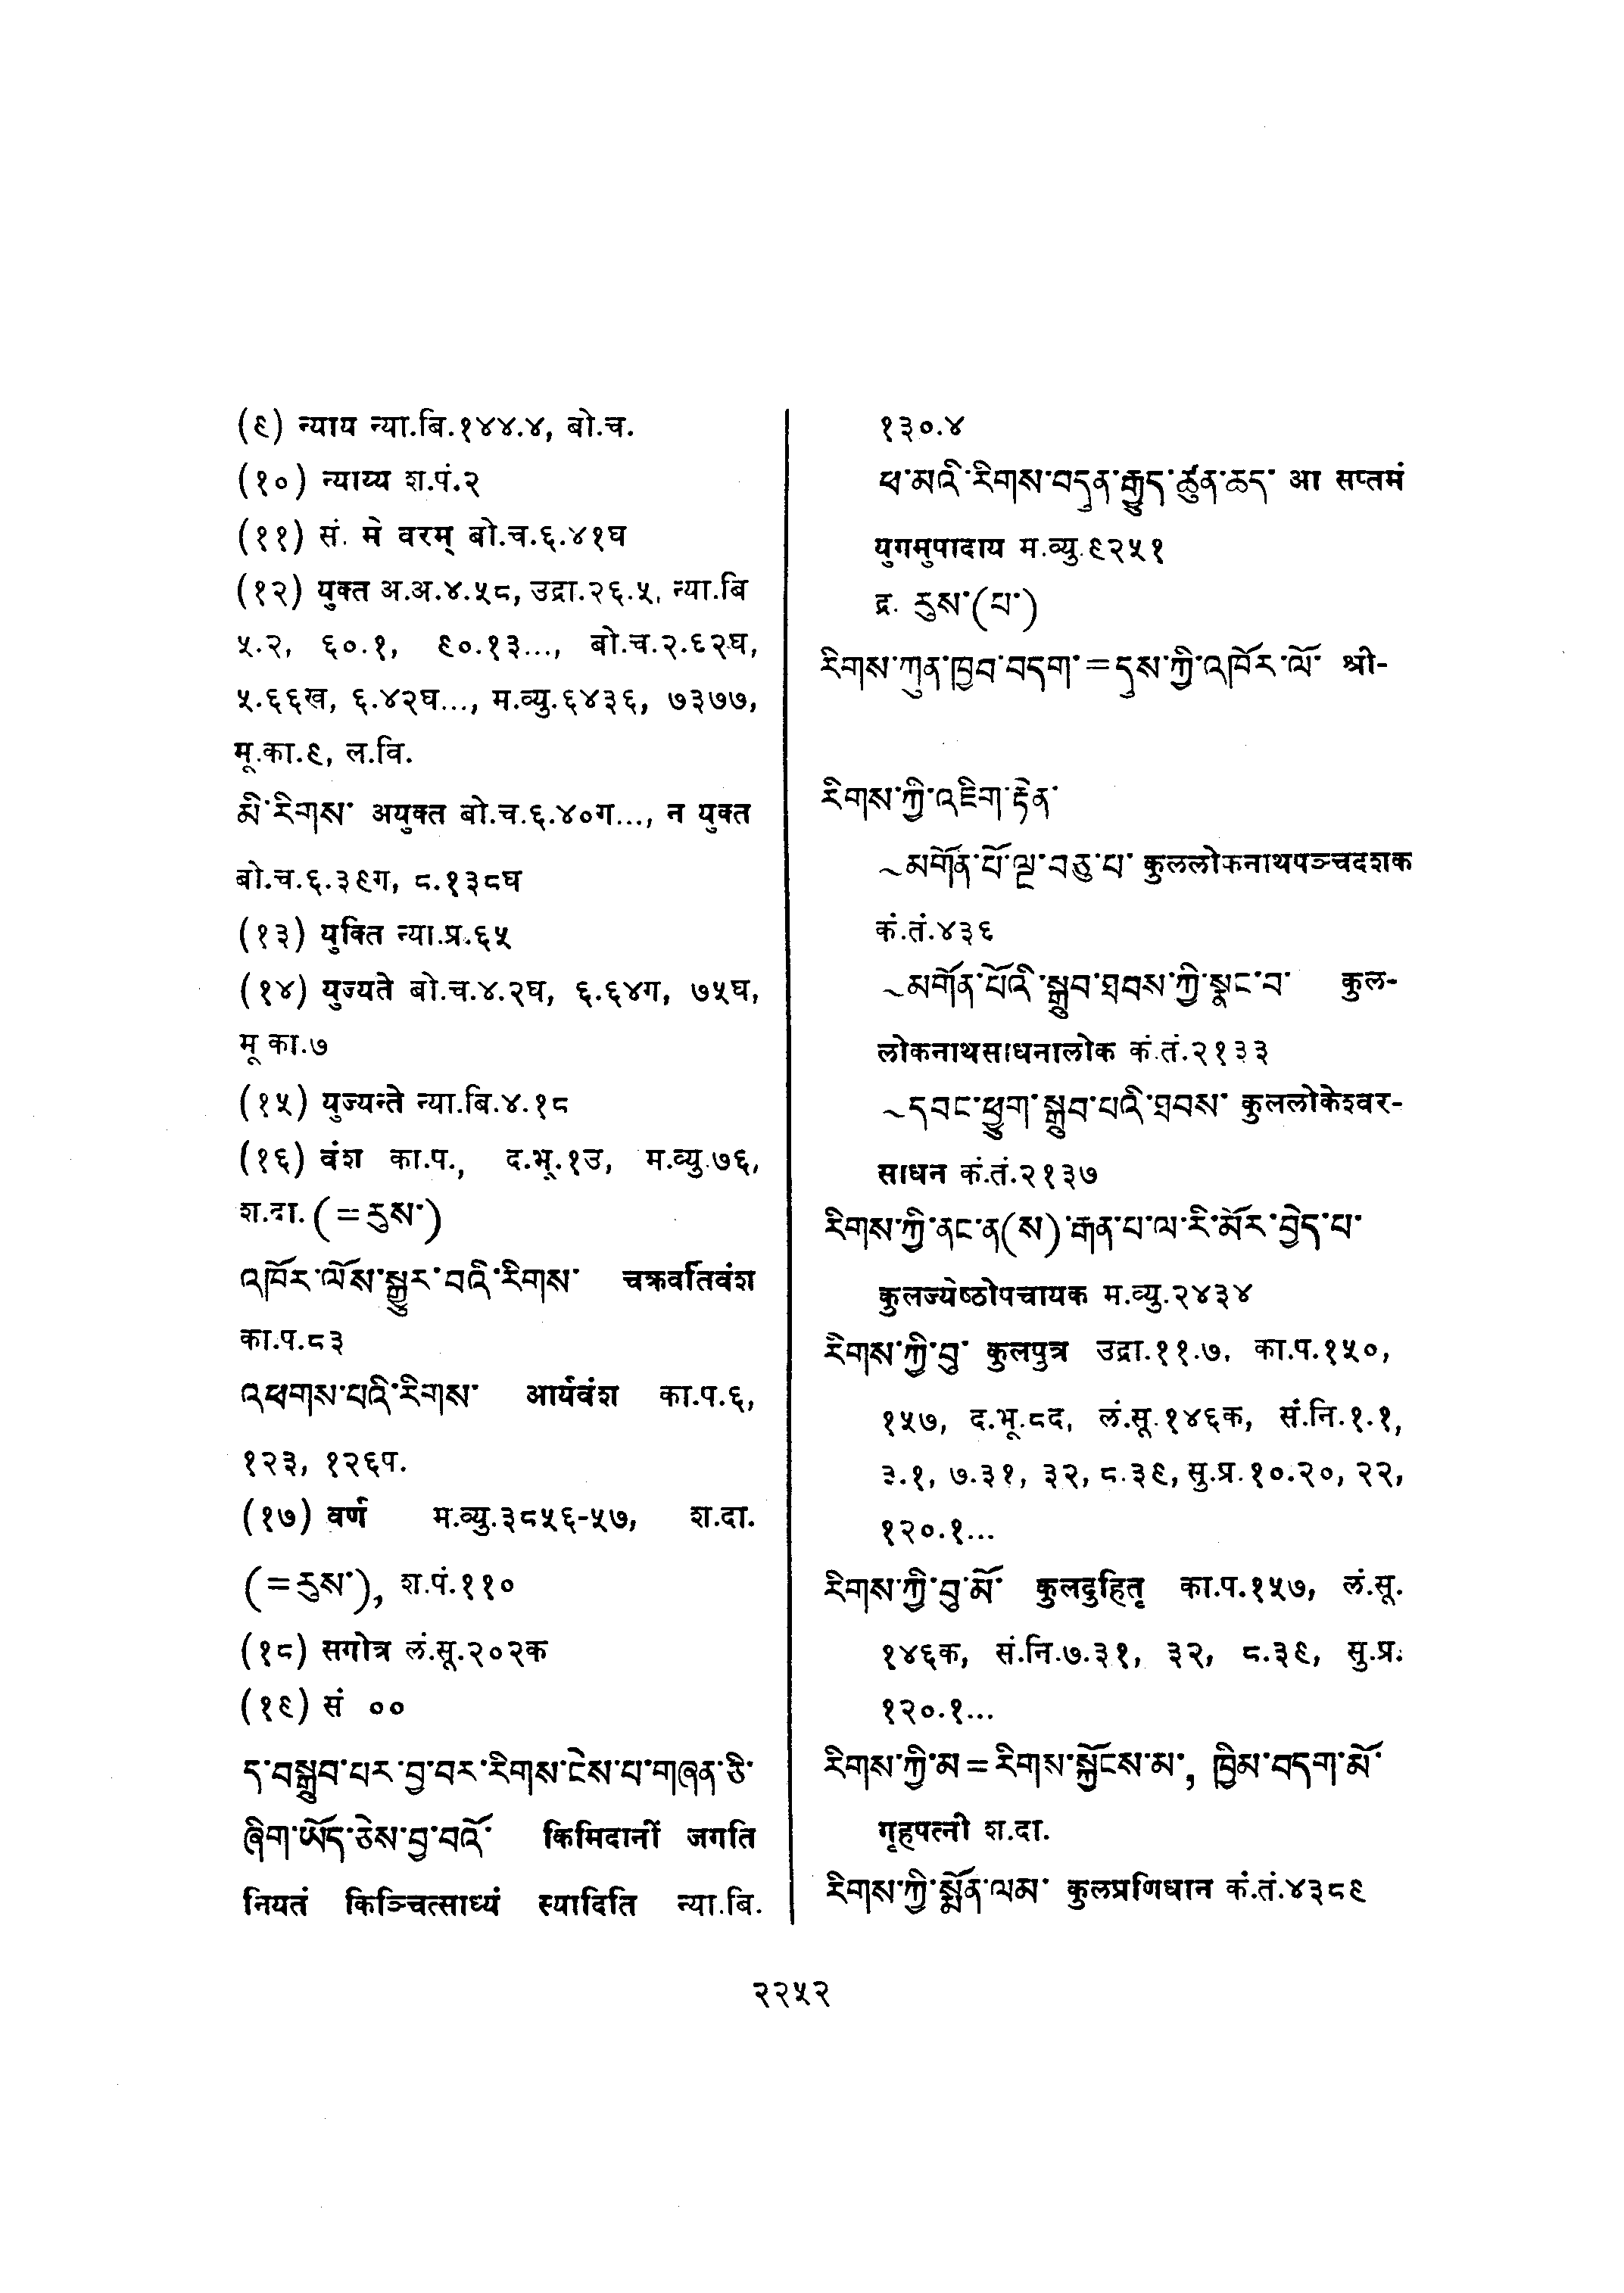 (९) न्याय न्या.बि.१४४.४, बो.च.
(१०) न्याय्य श.पं.२
(११) सं. मे वरम् बो.च.६.४१घ
(१२) युक्त अ.अ.४.५८, उद्रा.२६.५, न्या.बि
५.२, ६०.१, ९०.१३..., बो.च.२.६२घ,
५.६६ख, ६.४२घ..., म.व्यु.६४३६, ७३७७,
मू.का.९, ल.वि.
མི་རིགས་ अयुक्त बो.च.६.४०ग..., न युक्त
बो.च.६.३९ग, ८.१३८घ
(१३) युक्ति न्या.प्र.६५
(१४) युज्यते बो.च.४.२घ, ६.६४ग, ७५घ,
मू का.७
(१५) युज्यन्ते न्या.बि.४.१८
(१६) वंश का.प., द.भू.१उ, म.व्यु.७६,
श.दा. (=རུས་)
འཁོར་ལོས་སྒྱུར་བའི་རིགས་ चक्रवर्तिवंश
का.प.८३
འཕགས་པའི་རིགས་ आर्यवंश का.प.६,
१२३, १२६प.
(१७) वर्ण म.व्यु.३८५६-५७, श.दा.
(=རུས་), श.पं.११०
(१८) सगोत्र लं.सू.२०२क
(१९) सं ००
ད་བསྒྲུབ་པར་བྱ་བར་རིགས་ངེས་པ་གཞན་ཅི་
ཞིག་ཡོད་ཅེས་བྱ་བའོ་ किमिदानीं जगति
नियतं किञ्चित्साध्यं स्यादिति न्या.बि.
१३०.४
ཕ་མའི་རིགས་བདུན་རྒྱུད་ཚུན་ཆད་ आ सप्तमं
युगमुपादाय म.व्यु.९२५१
द्र. རུས་(པ་)
རིགས་ཀུན་ཁྱབ་བདག་=དུས་ཀྱི་འཁོར་ལོ་ श्री-
རིགས་ཀྱི་འཇིག་རྟེན་
~མགོན་པོ་ལྔ་བཅུ་པ་ कुललोकनाथपञ्चदशक
कं.तं.४३६
~མགོན་པོའི་སྒྲུབ་ཐབས་ཀྱི་སྣང་བ་ कुल-
लोकनाथसाधनालोक कं.तं.२१३३
~དབང་ཕྱུག་སྒྲུབ་པའི་ཐབས་ कुललोकेश्वर-
साधन कं.तं.२१३७
རིགས་ཀྱི་ནང་ན(ས)་རྒན་པ་ལ་རི་མོར་བྱེད་པ་
कुलज्येष्ठोपचायक म.व्यु.२४३४
རིགས་ཀྱི་བུ་ कुलपुत्र उद्रा.११.७, का.प.१५०,
१५७, द.भू.८द, लं.सू.१४६क, सं.नि.१.१,
३.१, ७.३१, ३२, ८.३९, सु.प्र.१०.२०, २२,
१२०.१...
རིགས་ཀྱི་བུ་མོ་ कुलदुहितृ का.प.१५७, लं.सू.
१४६क, सं.नि.७.३१, ३२, ८.३९, सु.प्र.
१२०.१...
རིགས་ཀྱི་མ=རིགས་སྐྱོངས་མ་, ཁྱིམ་བདག་མོ་
गृहपत्नी श.दा.
རིགས་ཀྱི་སྨོན་ལམ་ कुलप्रणिधान कं.तं.४३८९
२२५२